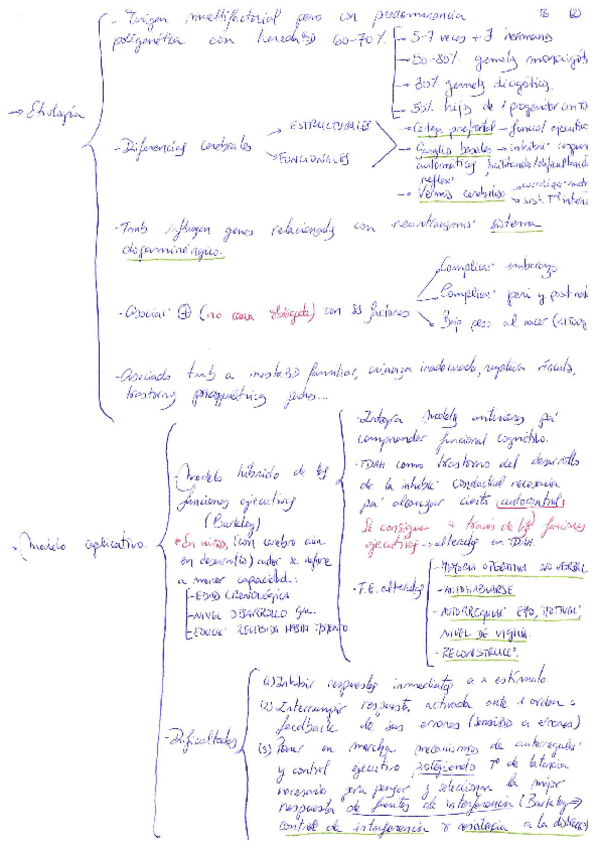 - Origen multifactorial pero con predominancia
poligenética con heredabD 60-70%
T6
- 5-7 veces + 1 hermano
- 50-80% gemelos
- 50% hijos de 1 progenitor con
→ Etiología
- Diferencias cerebrales → ESTRUCTURALES
→ FUNCIONALES
→ Corteza prefrontal →
→ Ganglios basales →
→ Vermis cerebeloso
- Tmb influyen genes relacionados con sistema
dopaminérgico.
- ⊕ (no causa obligada) con ss factores
Complicac embarazo
Complicac peri y postnat
Bajo peso al nacer
- Asociado tmb a familiar, crianza inadecuada, ruptura vínculo,
trastornos padres...
→ Modelo explicativo.
- Modelo híbrido de las
funciones ejecutivas
(Barkley)
* En niños, (con cerebro aún
en desarrollo) se refiere
a menor capacidad:
- EDAD CRONOLÓGICA
- NIVEL DESARROLLO GRAL.
- EDUCAC RECIBIDA HASTA
- Integra modelos anteriores pa
comprender funcional cognitivo.
- TDAH como trastorno del desarrollo
de la inhibic conductual necesaria
pa alcanzar cierto autocontrol
Se consigue a través de las funciones
ejecutivas → alteradas en TDAH.
- F.E. alteradas
- MEMORIA OPERATIVA NO VERBAL
- AUTOHABLARSE
- AUTORREGULAC EMO, MOTIVAC,
NIVEL DE VIGILIA.
- RECONSTRUCC.
- Dificultades
(1) Inhibir respuestas inmediatas a x estímulo
(2) Interrumpir respuesta activada ante 1 orden o
feedback de sus errores (sensible a errores)
(3) Poner en marcha mecanismos de autorregulac
y control ejecutivo protegiendo Tº de latencia
necesario para pensar y seleccionar la mejor
respuesta de fuentes de interferencia (Barkley →
control de interferencia o resistencia a la distracc)